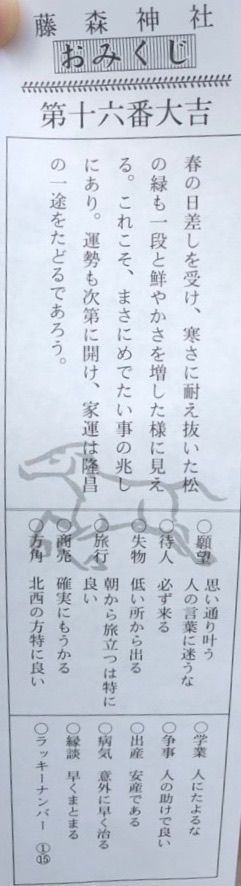 藤森神社
おみくじ
第十六番大吉
春の日差しを受け、寒さに耐え抜いた松
の緑も一段と鮮やかさを増した様に見え
る。これこそ、まさにめでたい事の兆し
にあり。運勢も次第に開け、家運は隆昌
の一途をたどるであろう。
○願望 思い通り叶う
人の言葉に迷うな
○待人 必ず来る
○失物 低い所から出る
○旅行 朝から旅立つは特に
良い
○商売 確実にもうかる
○方角 北西の方特に良い
○学業 人にたよるな
○争事 人の助けで良い
○出産 安産である
○病気 意外に早く治る
○縁談 早くまとまる
○ラッキーナンバー ①⑮